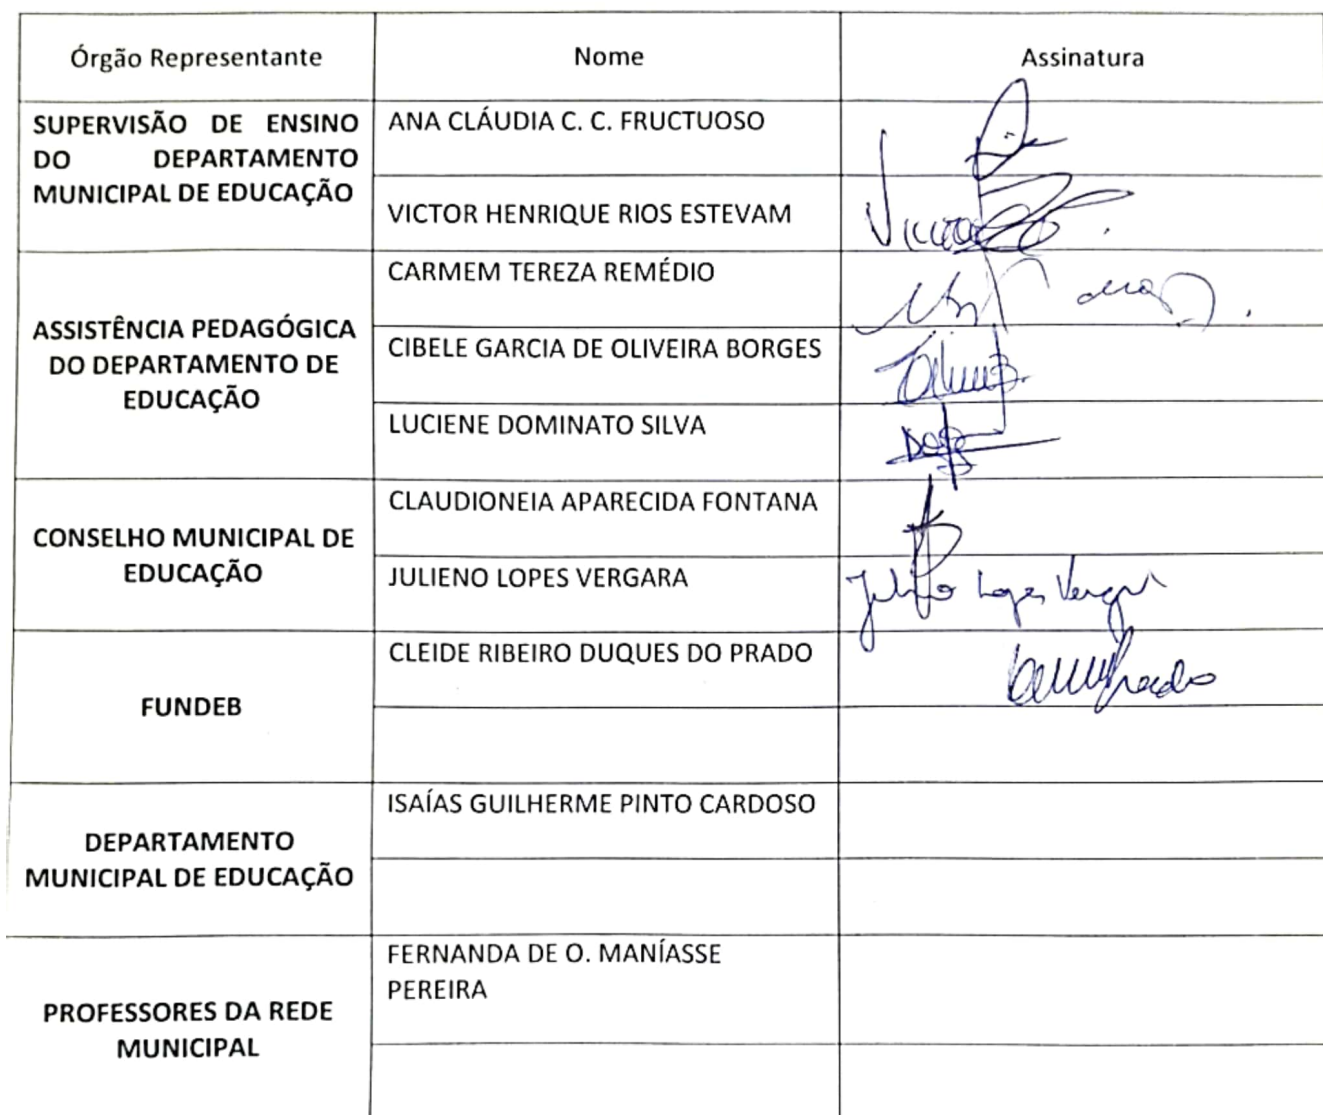 Órgão Representante Nome Assinatura
SUPERVISÃO DE ENSINO
DO DEPARTAMENTO
MUNICIPAL DE EDUCAÇÃO
ANA CLÁUDIA C. C. FRUCTUOSO
VICTOR HENRIQUE RIOS ESTEVAM
ASSISTÊNCIA PEDAGÓGICA
DO DEPARTAMENTO DE
EDUCAÇÃO
CARMEM TEREZA REMÉDIO
CIBELE GARCIA DE OLIVEIRA BORGES
LUCIENE DOMINATO SILVA
CONSELHO MUNICIPAL DE
EDUCAÇÃO
CLAUDIONEIA APARECIDA FONTANA
JULIENO LOPES VERGARA
Lopes
FUNDEB
CLEIDE RIBEIRO DUQUES DO PRADO
DEPARTAMENTO
MUNICIPAL DE EDUCAÇÃO
ISAÍAS GUILHERME PINTO CARDOSO
PROFESSORES DA REDE
MUNICIPAL
FERNANDA DE O. MANÍASSE
PEREIRA